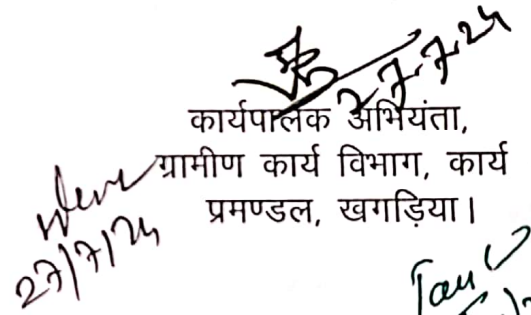 27.7.24
कार्यपालक अभियंता,
ग्रामीण कार्य विभाग, कार्य
प्रमण्डल, खगड़िया।
27/7/24